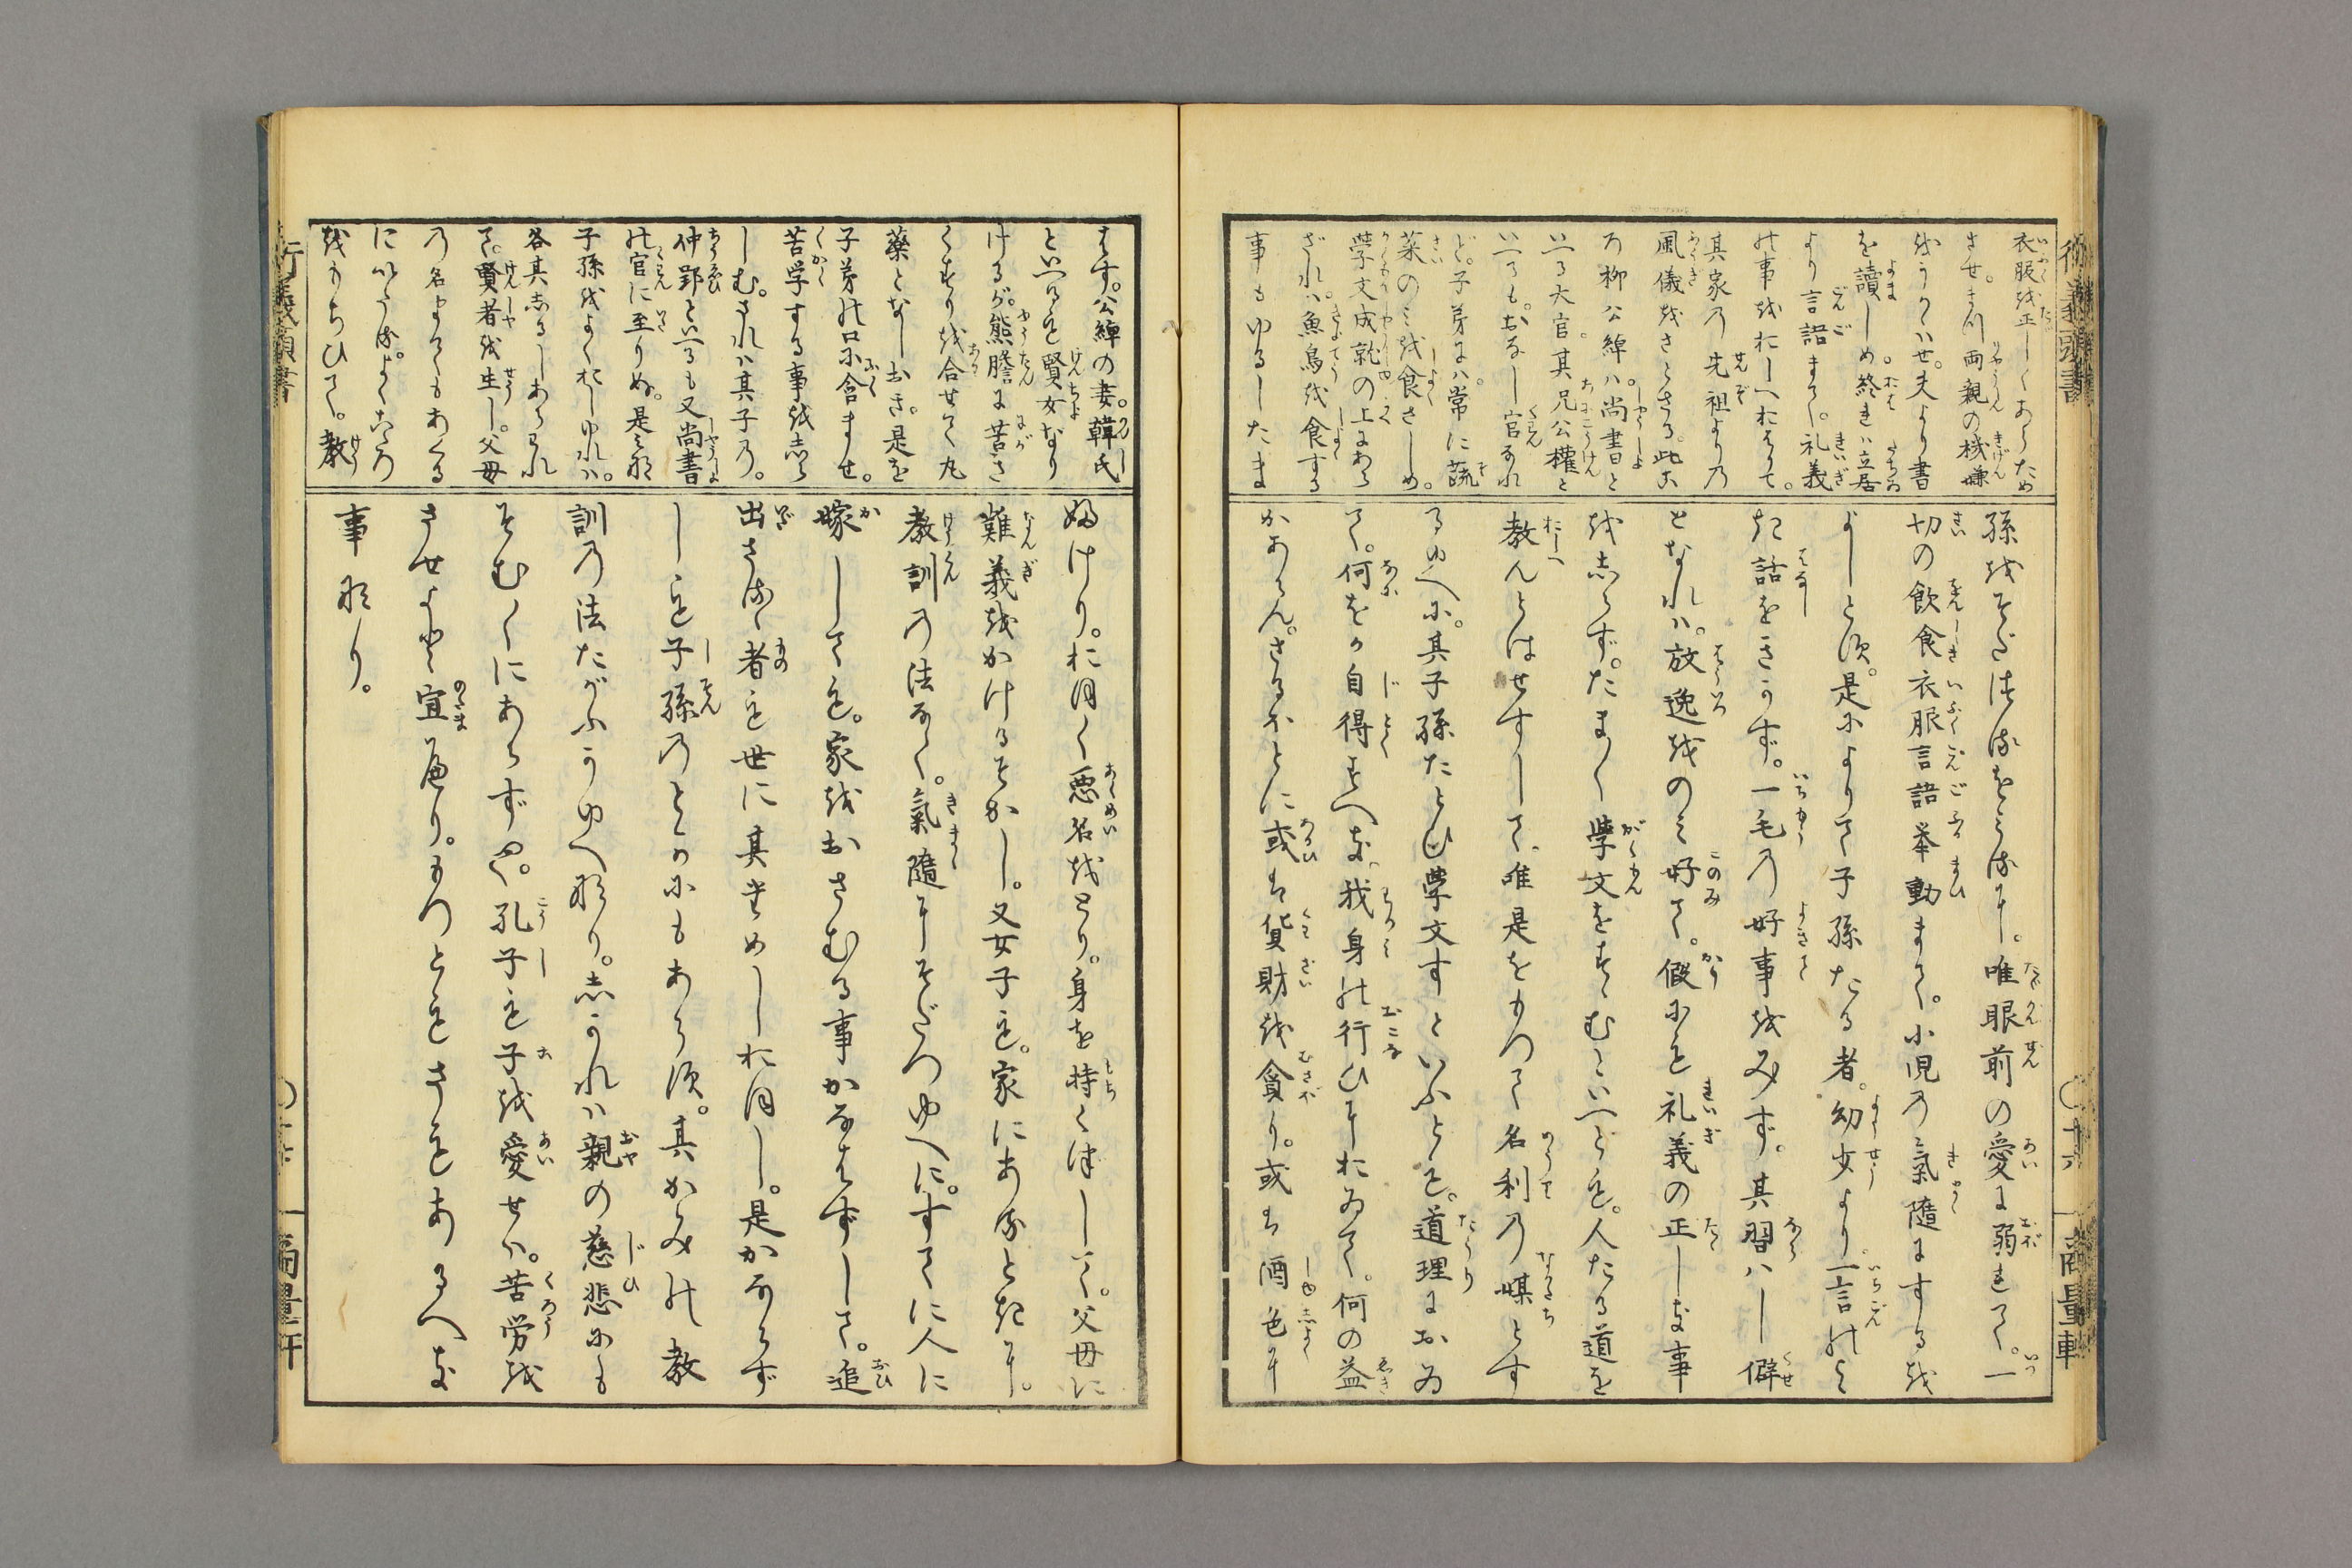 衣服を正しくあらため
させ。まづ両親の機嫌
をうかゞはせ。夫より書
を讀しめ。終れバ立居
より言語まて。礼義
の事をおしへおはりて。
其家乃先祖よりの
風儀をさとさる。此
乃柳公綽ハ。尚書と
いふ大官。其兄公權と
いふも。おなし官なれ
ど。子弟にハ常に蔬
菜のミを食さしめ。
学文成就の上にあら
ざれバ。魚鳥を食する
事もゆるしたま
孫をそだつるをミるに。唯眼前の愛に溺れて。一
切の飲食衣服言語挙動まて。小児乃氣随にするを
よしとす。是によりて子孫たる者。幼少より一言のよ
き話をきかず。一毛乃好事をみず。其習ハし僻
となれバ。放逸をのミ好て。假にも礼義の正しき事
をしらず。たま〱学文をすゝむといへども。人たる道を
教んとはせずして。唯是をもつて名利乃媒とす
るゆへに。其子孫たとひ学文すといふとも。道理におゐ
て。何をか自得すべき。我身の行ひにおゐて。何の益
かあらん。さるほとに或は貨財を貪り。或は酒色に
はす。公綽の妻。韓氏
といへるも賢女なり
けるが。熊膽に苦き
くすりを合せて丸
藥となしおき。是を
子弟の口に含ませ。
苦学する事をしら
しむ。されハ其子乃。
仲郢といふも又尚書
の官に至りぬ。是ミな
子孫をよくおしゆれハ。
各其しるしあらわれ
て。賢者を生し。父母
乃名まてもあくる
にいたる。よくこゝろ
をもちひて。教
婦けり。おほく悪名をとり。身を持くづして。父母に
難義をかけるぞかし。又女子も。家にあるときに。
教訓乃法なく。氣随にそだつゆへに。すてに人に
嫁しても。家をおさむる事かなはずして。追
出さるゝ者も世に其ためしおほし。是かならず
しも子孫乃とかにもあらす。其かみの教
訓乃法たがふかゆへなり。しかれハ親の慈悲にも
そむくにあらずや。孔子も子を愛せハ。苦労を
させよと宣へり。もつともさもあるへき
事なり。